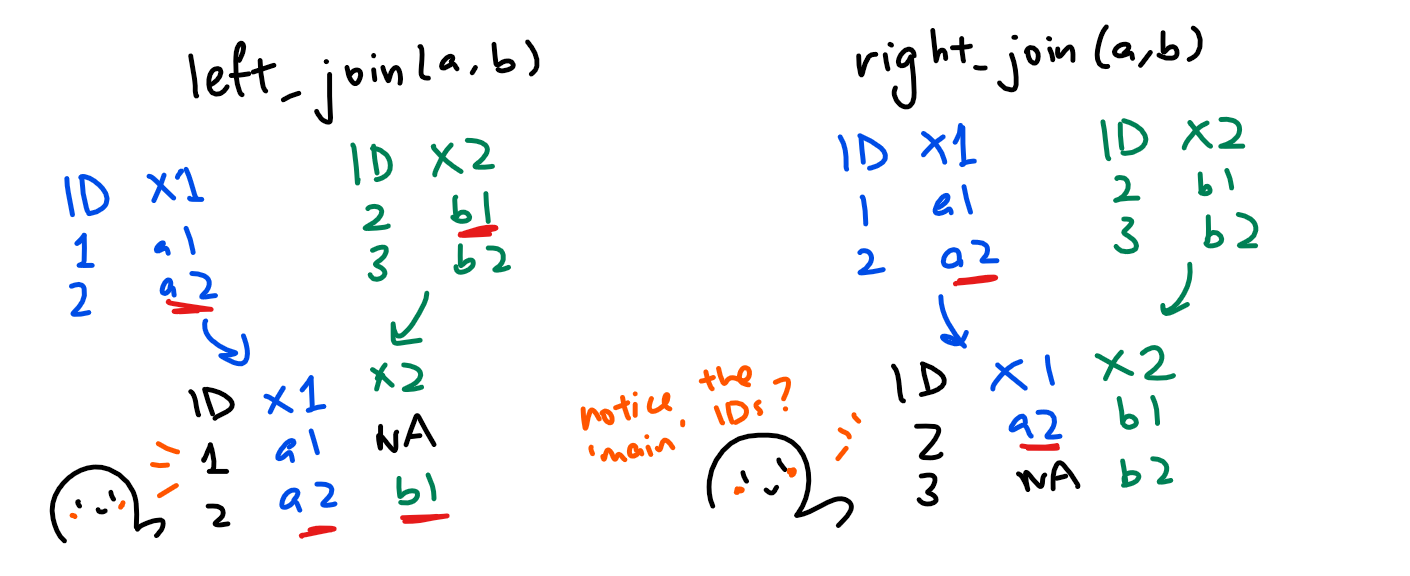 left_join(a,b)
ID X1
1 a1
2 a2
ID X2
2 b1
3 b2
ID X1 X2
1 a1 NA
2 a2 b1
right_join(a,b)
ID X1
1 a1
2 a2
ID X2
2 b1
3 b2
notice the
'main' IDs?
ID X1 X2
2 a2 b1
3 NA b2